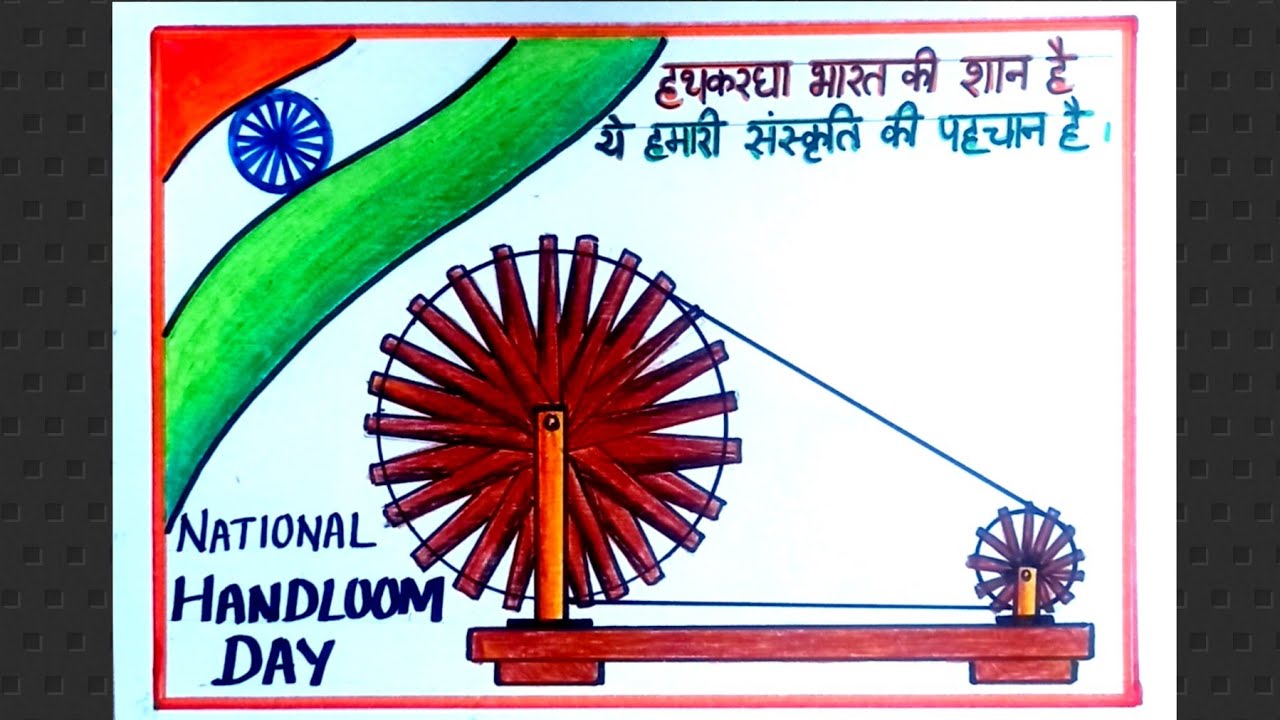 हथकरघा भारत की शान है
ये हमारी संस्कृति की पहचान है।
NATIONAL
HANDLOOM
DAY